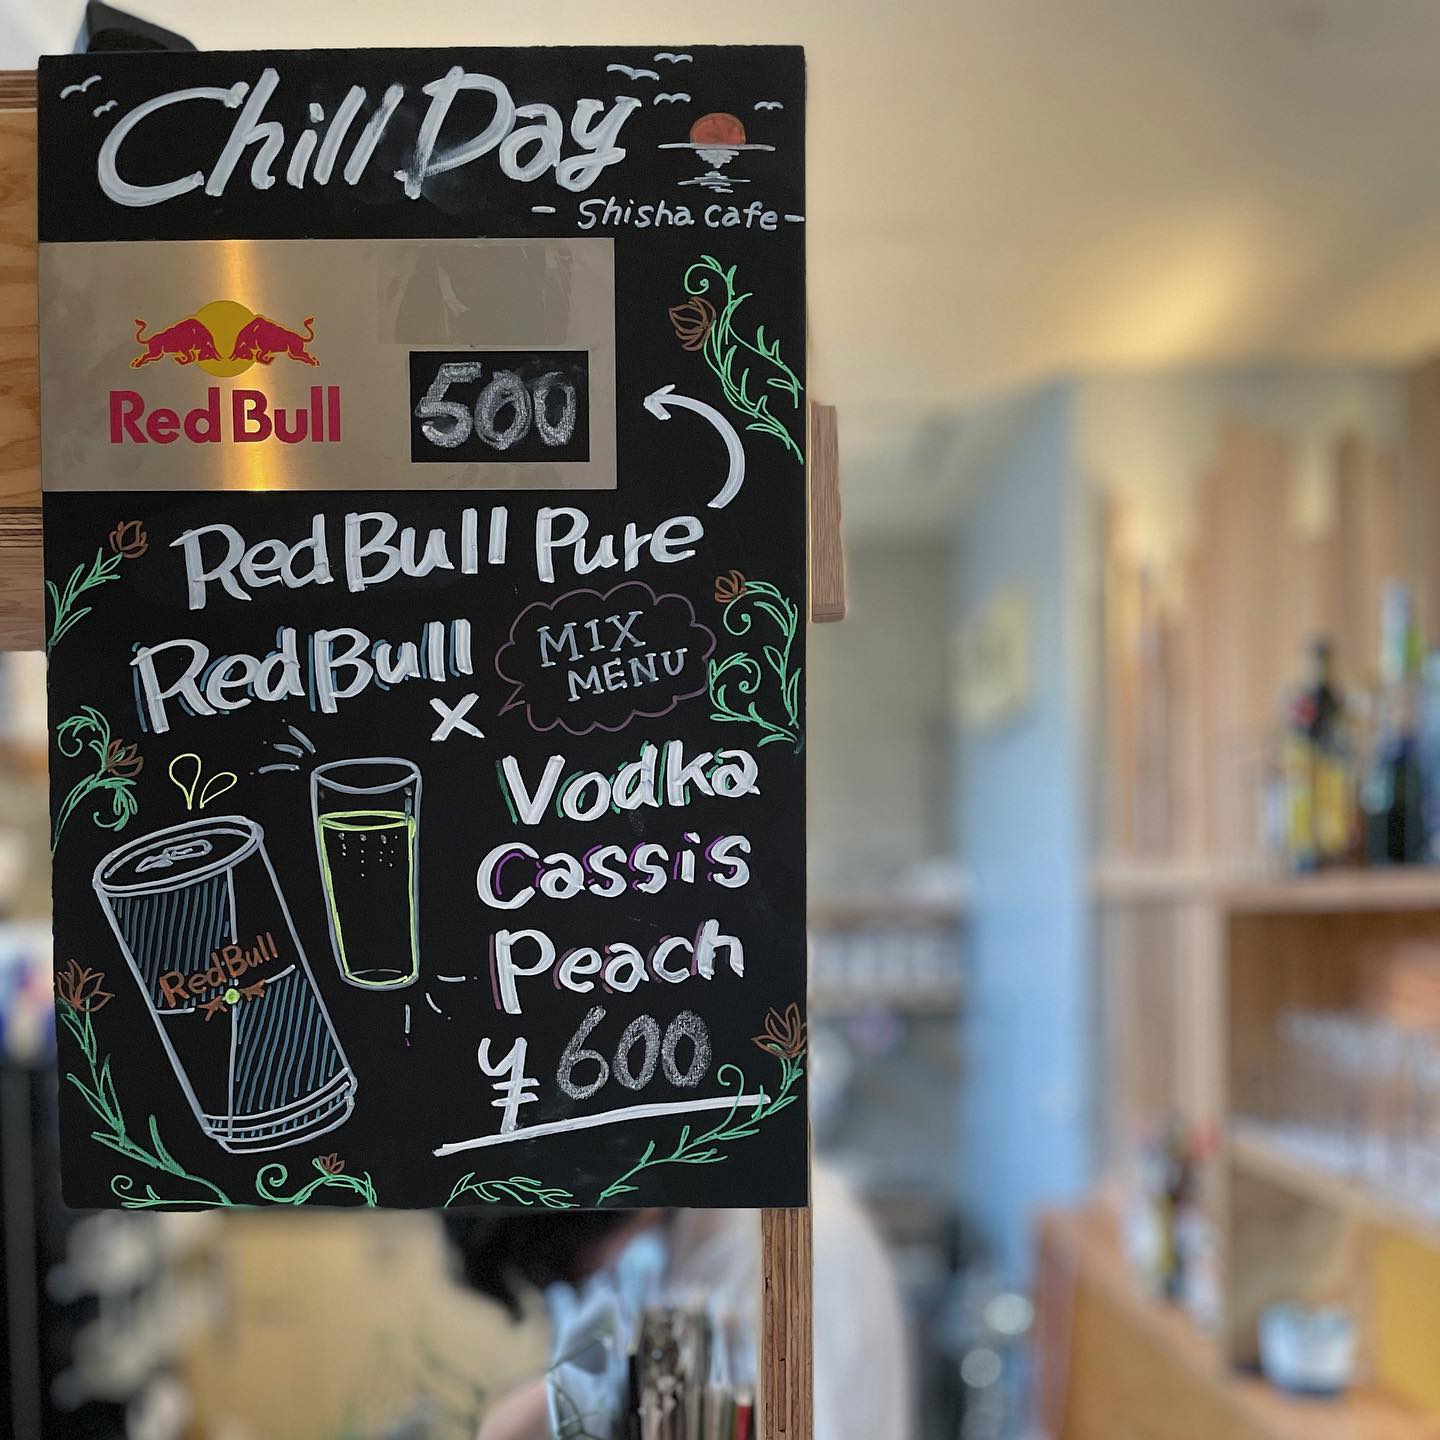 Chill Day
- Shisha cafe -
Red Bull
500
RedBull Pure
RedBull
MIX
MENU
x
Vodka
Cassis
Peach
RedBull
¥600